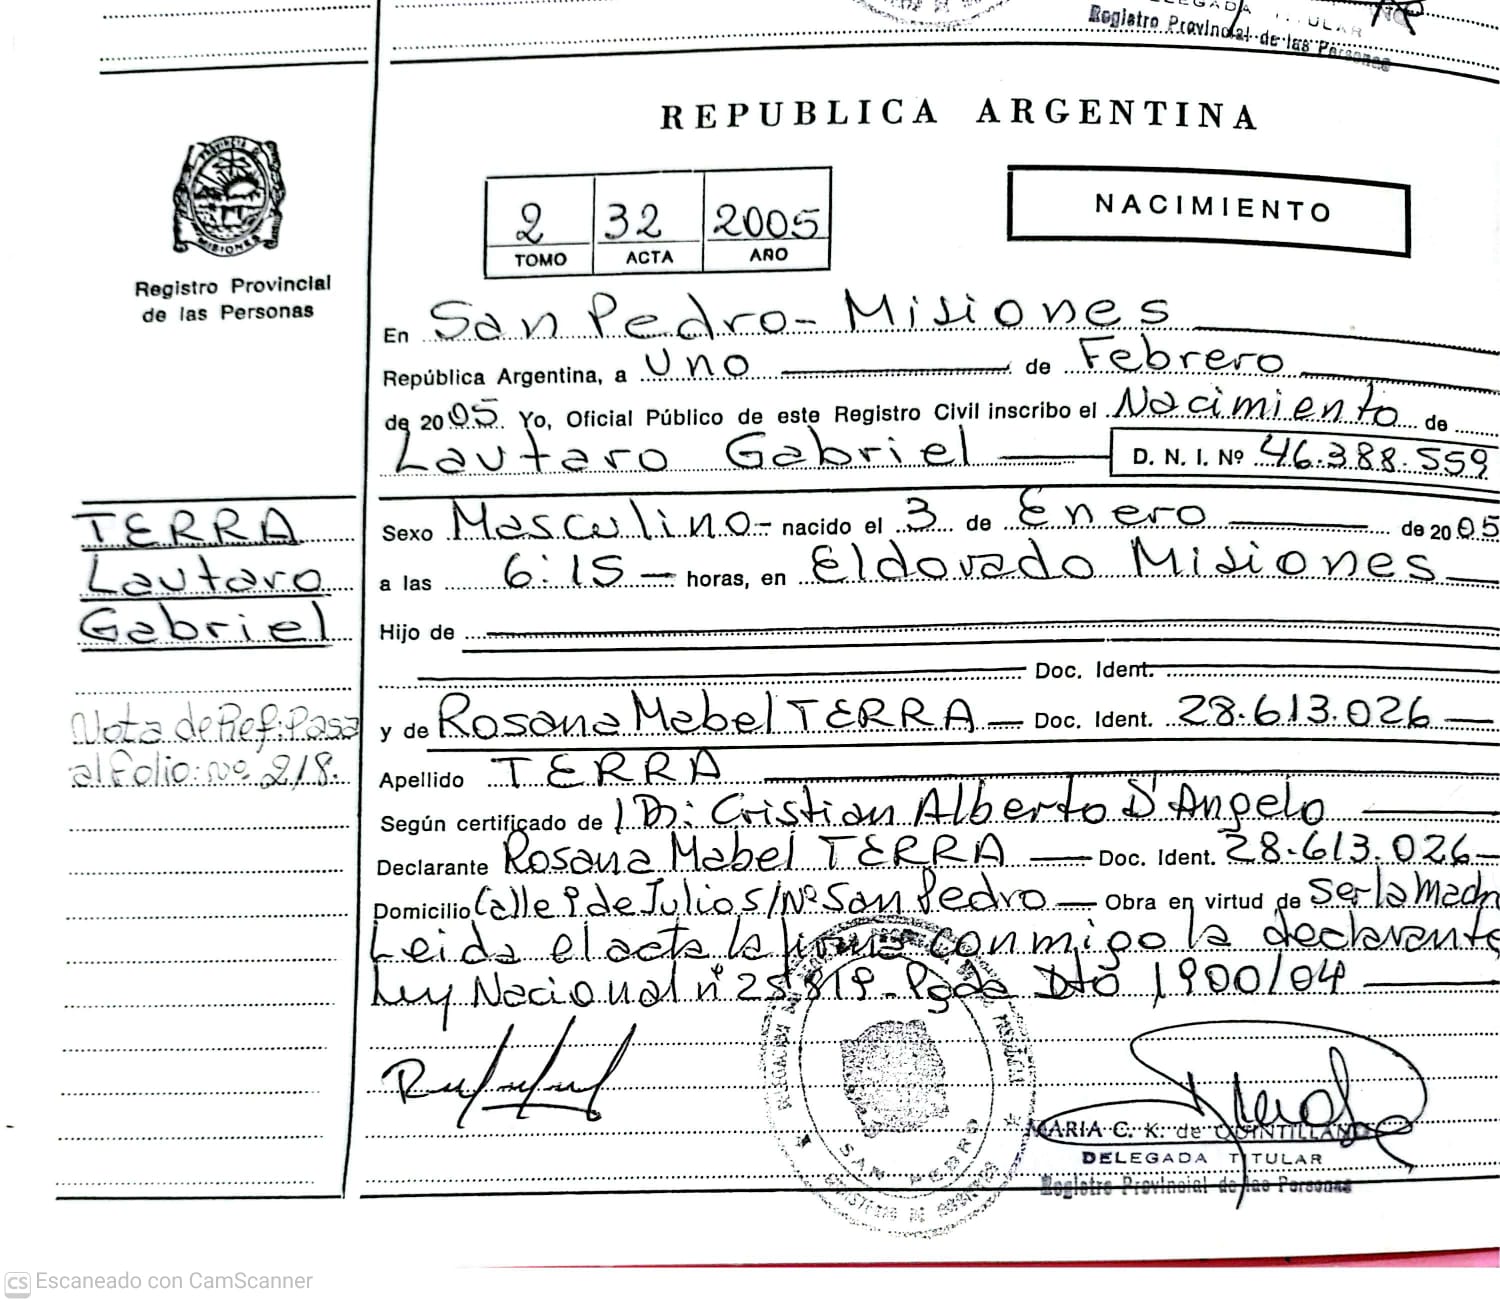 DELEGADA TITULAR
Registro Provincial de las Personas
REPUBLICA ARGENTINA
PROVINCIA D
MISIONES
Registro Provincial
de las Personas
2 32 2005
TOMO ACTA AÑO
NACIMIENTO
En San Pedro - Misiones
República Argentina, a Uno de Febrero
de 2005. Yo, Oficial Público de este Registro Civil inscribo el Nacimiento de
Lautaro Gabriel D. N. I. Nº 46.388.559
TERRA
Lautaro
Gabriel
Sexo Masculino - nacido el 3 de Enero de 2005
a las 6:15 horas, en Eldorado Misiones
Hijo de
Doc. Ident.
Nota de Ref: Pasa
al folio: nº 218.
y de Rosana Mabel TERRA Doc. Ident. 28.613.026
Apellido TERRA
Según certificado de Dr: Cristian Alberto D'Angelo
Declarante Rosana Mabel TERRA Doc. Ident. 28.613.026
Domicilio Calle 9 de Julio S/Nº San Pedro Obra en virtud de Ser la Madre
Leida el acta la firma conmigo la declarante
Ley Nacional nº 25.819 - Dto 1900/04
SAN PEDRO
MARIA C. K. de QUINTILLAN
DELEGADA TITULAR
Registro Provincial de las Personas
CS Escaneado con CamScanner